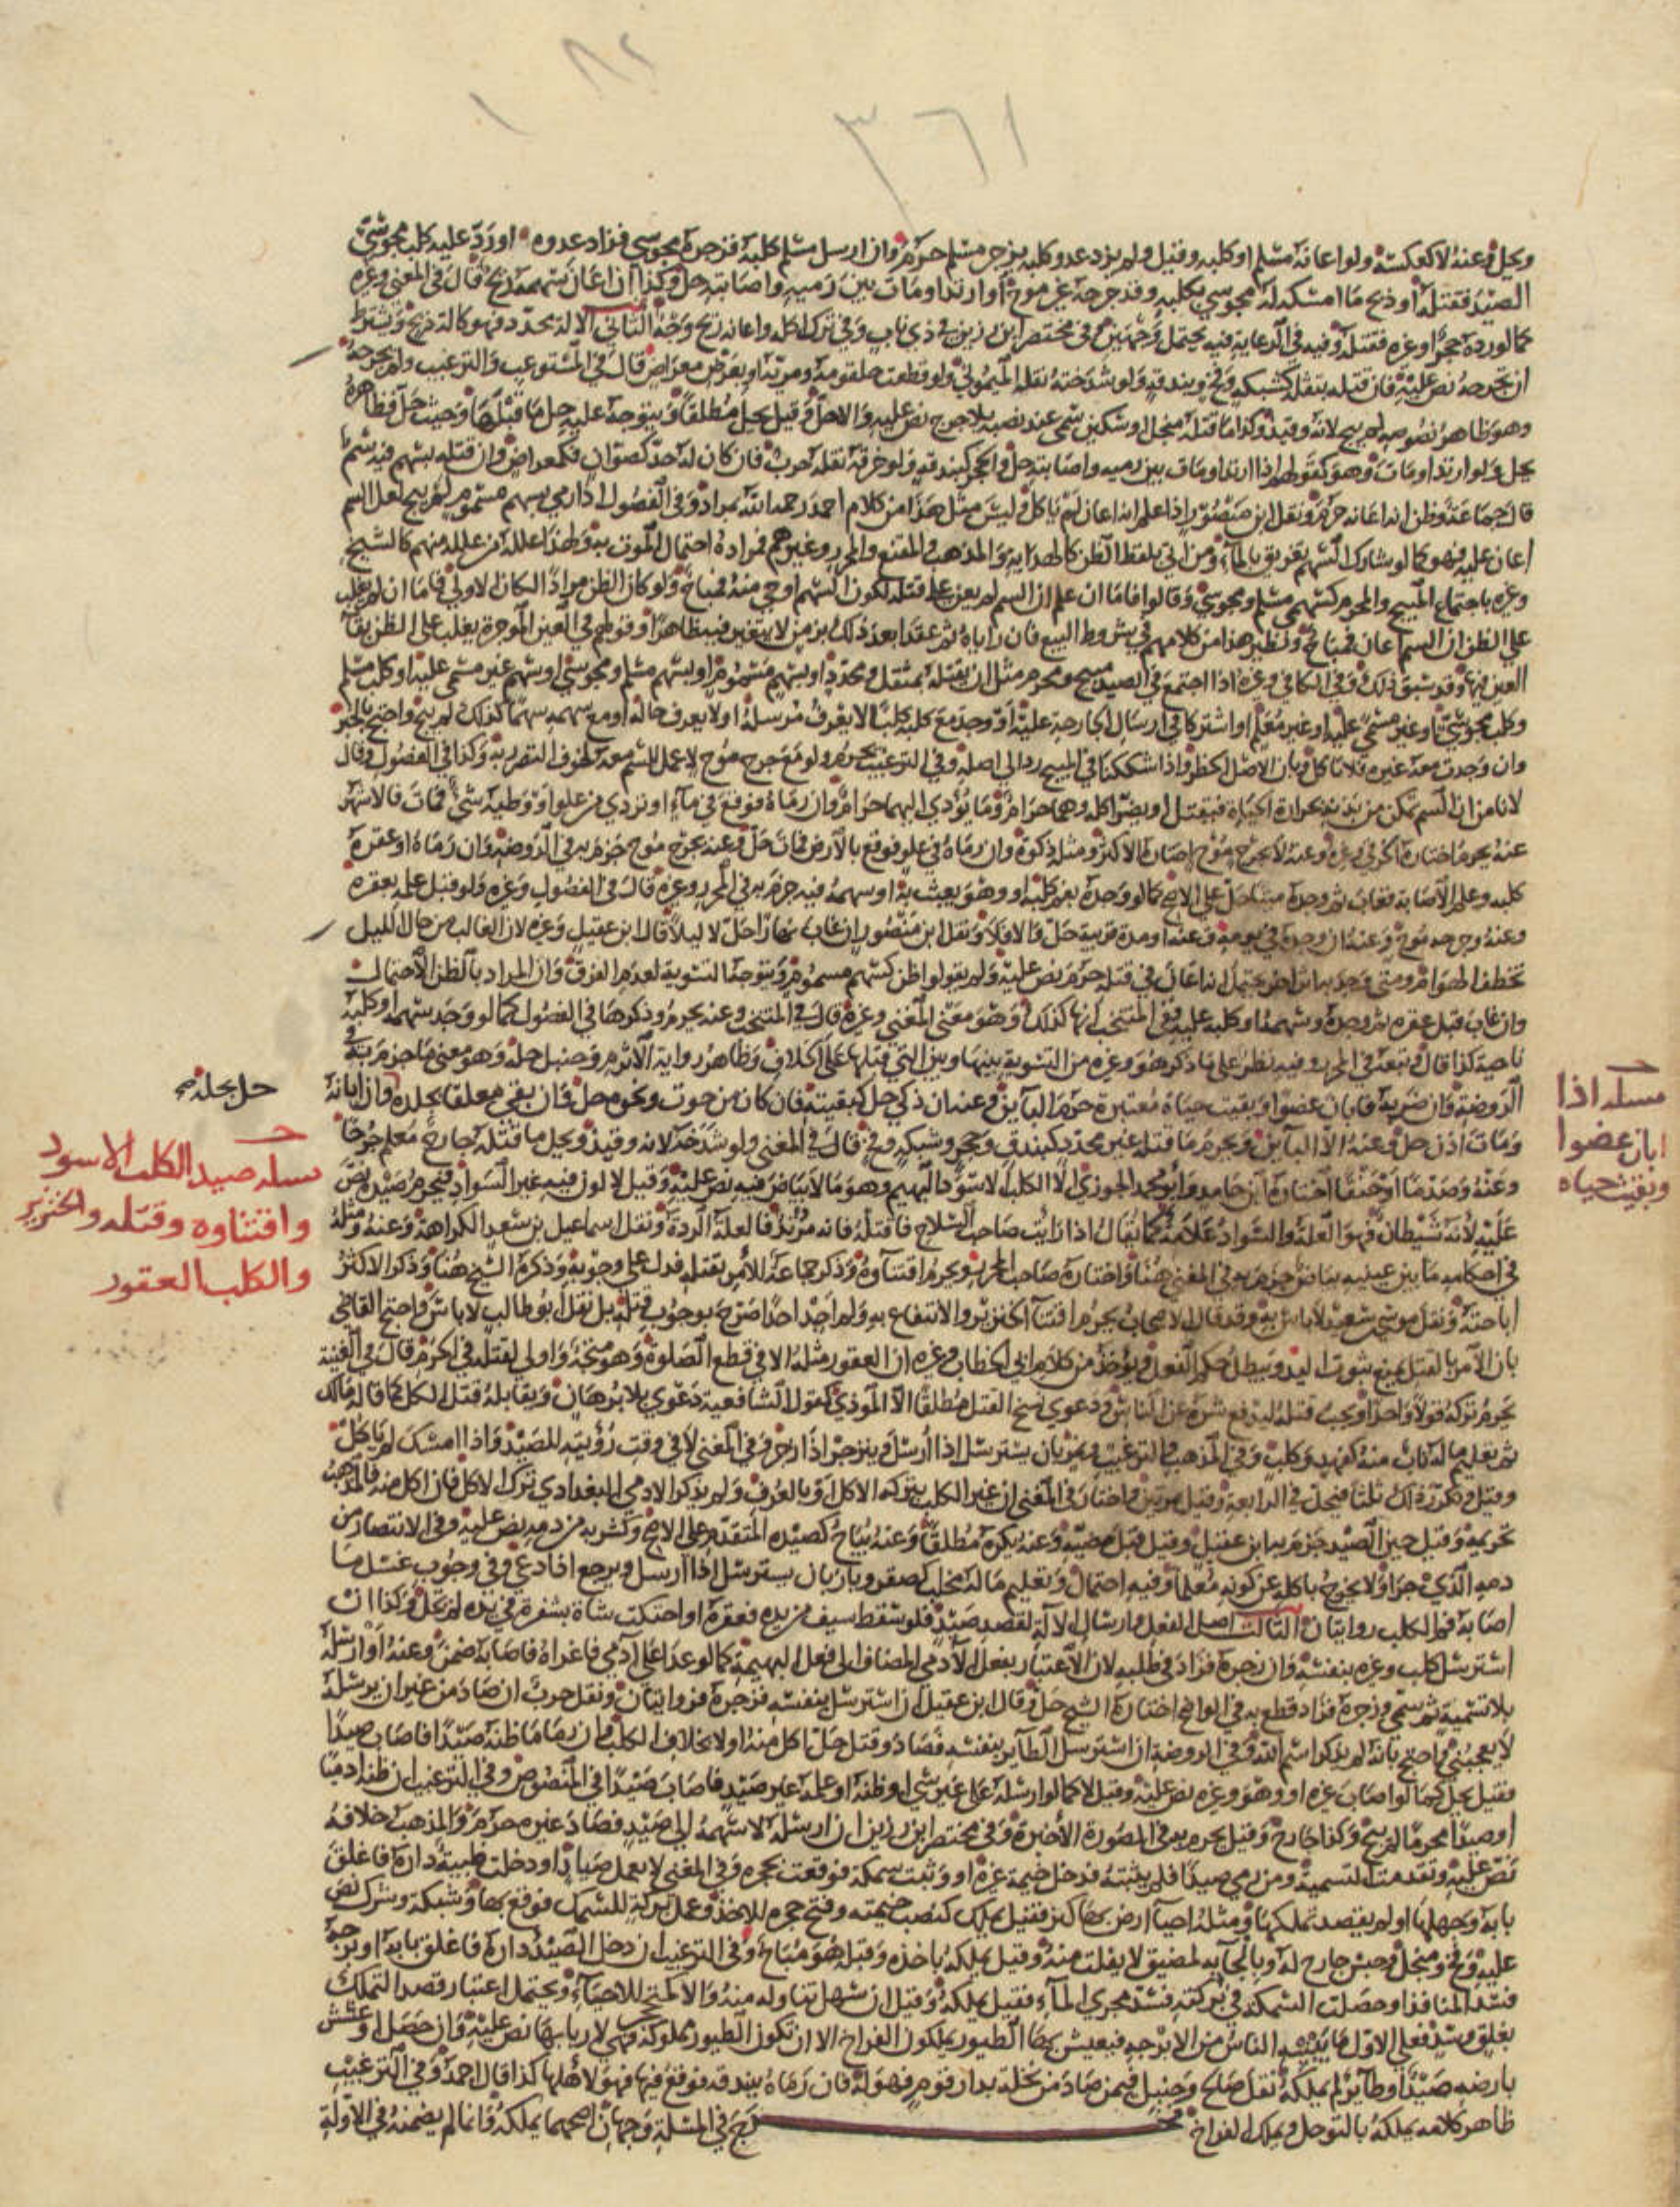 ٨٢
١
٣٦١
ويحل وعنه لا كعكسه ولو اعانه مسلم او كلبه وقيل ولم يزد عدو كلبه بزجر مسلم حرم وان ارسل مسلم كلبه فزجره مجوسي فزاد عدوه او رد عليه كلب مجوسي
الصيد فقتله او ذبح ما امسكه له مجوسي بكلبه وقد جرحه غير موح او ارتد او مات بين رميه واصابته حل وكذا ان اعان سهمه ريح قال في المغني وغيره
كما لو رده حجر او غيره فقتله وفيه في الرعاية فيه يحتمل وجهين وفي مختصر ابن رزين في ذي ناب وفي ترك اكله واعانه ريح وجه الثاني الالة محدد فهو كالة ذبح ويشترط
ان يجرحه نص عليه فان قتله بثقله كشبكة وفخ وبندقه ولو شدخته نقله الميموني ولو قطعت حلقومه ومريه او بعرض معراض قال في المستوعب والترغيب ولم يجرحه
وهو ظاهر نصوصه لم يبح لانه وقيذ وكذا ما قتله منجل او سكين سمى عند نصبه بلا جرح نص عليه والا حل وقيل يحل مطلقا ويتوجه عليه حل ما قبلها وحيث حل فظاهره
يحل ولو ارتد او مات وهو كقولهم اذا ارتد او مات بين رميه واصابته حل والحجر كبندقه ولو خرقه نقله حرب فان كان له حد كصوان فكمعراض وان قتله بسهم فيه سم
قال جماعة وظن انه اعانه حرم ونقل ابن منصور اذا علم انه اعان لم ياكل وليس مثل هذا من كلام احمد رحمه الله بمراد وفي الفصول اذا رمي بسهم مسموم لم يبح لعل السم
اعان عليه فهو كما لو شارك السهم تغريق بالماء ومن اتى بلفظ الظن كالهداية والمذهب والمقنع والمحرر وغيرهم فمراده احتمال الموت به ولهذا علله من علله منهم كالشيخ
وغيره باجتماع المبيح والمحرم كسهمي مسلم ومجوسي وقالوا فاما ان علم ان السم لم يعن على قتله لكون السهم اوحى منه فمباح ولو كان الظن مرادا لكان الاولى فاما ان لم يغلب
على الظن ان السم اعان فمباح ونظير هذا من كلامهم في شروط البيع فان راياه ثم عقدا بعد ذلك بزمن لا يتغير فيه ظاهرا وقولهم في العين المؤجرة يغلب على الظن بقاء
العين فيها وقد سبق ذلك وفي الكافي وغيره اذا اجتمع في الصيد مبيح ومحرم مثل ان يقتله بمثقل ومحدد او بسهم مسموم او بسهم مسلم ومجوسي او بسهم غير مسمى عليه او كلب مسلم
وكلب مجوسي او غير مسمى عليه او غير معلم او اشتركا في ارسال الجارحة عليه او وجد مع كلبه كلبا لا يعرف مرسله او لا يعرف حاله او مع سهمه سهما كذلك لم يبح واحتج بالخبر
وان وجدت معه غيره فلا تاكل وبان الاصل الحظر واذا شككنا في المبيح رد الى اصله وفي الترغيب يحرم ولو مع جرح موح لا عمل للسم معه لخوف التضرر به وكذا في الفصول وقال
لا نامن ان السم تمكن من بدنه بحرارة الحياة فيقتل او يضر اكله وهما حرام وما يؤدي اليهما حرام وان رماه فوقع في ماء او تردى من علو او وطيه شيء فمات فالاشهر
عنه يحرم اختاره الخرقي وغيره وعنه لا بجرح موح اختاره الاكثر ومثله ذكوة وان رماه في علو فوقع بالارض فمات حل وعنه بجرح موح جزم به في الروضة وان رماه او عقره
كلبه وعلم الاصابة فغاب ثم وجده ميتا حل على الاصح كما لو وجده بفم كلبه او وهو يعبث به او سهمه فيه جزم به في المحرر وغيره قال في الفصول وغيره ولو قبل علمه بعقره
وعنه وجرحه موح وعنه ان وجده في يومه وعنه او مدة قريبة حل والا فلا ونقل ابن منصور ان غاب نهارا حل لا ليلا قال ابن عقيل وغيره لان الغالب من حال الليل
تخطف الهوام ومتى وجد به اثر اخر يحتمل انه اعان في قتله حرم نص عليه ولم يقولوا ظن كسهم مسموم ويتوجه التسوية لعدم الفرق وان المراد بالظن الاحتمال
وان غاب قبل عقره ثم وجده وسهمه او كلبه عليه ففي المنتخب انها كذلك وهو معنى المغني وغيره قال في المنتخب وعنه يحرم وذكرها في الفصول كما لو وجد سهمه او كلبه
ناحية كذا قال وتبعه في المحرر وفيه نظر على ما ذكر هو وغيره من التسوية بينها وبين التي قبلها على الخلاف وظاهر رواية الاثرم وحنبل حله وهو معنى ما جزم به في
الروضة وان ضربه فابان عضوا وبقيت حياة معتبرة حرم الباين وعنه ان ذكي حل كبقيته فان كان من حوت ونحوه حل فان بقي معلقا بجلده وان ابانه
حل بجلده
ومات اذن حل وعنه الا الباين ويحرم ما قتله غير محدد كبندق وحجر وشبكة وفخ قال في المغني ولو شدخه لانه وقيذ ويحل ما قتله جارح معلم جرحا
وعنه وصدما او خنقا اختاره ابن حامد وابو محمد الجوزي الا الكلب الاسود البهيم وهو ما لا بياض فيه نص عليه وقيل لا لون فيه غير السواد فيحرم صيده نص
عليه لانه شيطان فهو العلة والسواد علامة كما يقال اذا رايت صاحب السلاح فاقتله فانه مرتد فالعلة الردة ونقل اسماعيل بن سعيد الكراهة وعنه ومثله
في احكامه ما بين عينيه بياض جزم به في المغني هنا واختاره صاحب المحرر ويحرم اقتناوه وذكر جماعة الامر بقتله فدل على وجوبه وذكره الشيخ هنا وذكر الاكثر
اباحته ونقل موسى بن سعيد لا باس به وقد قال الاصحاب يحرم اقتناء الخنزير والانتفاع به ولم اجد احدا صرح بوجوب قتله بل نقل ابو طالب لا باس واحتج القاضي
بان الامر بالقتل يمنع ثبوت اليد ويبطل حكم الفعل ويؤخذ من كلام ابي الخطاب وغيره ان العقور مثله الا في قطع الصلوة وهو متجه واولى لقتله في الحرم قال في الغنية
يحرم تركه قولا واحدا ويجب قتله ليدفع شره عن الناس ودعوى نسخ القتل مطلقا الا الموذي كقول الشافعية دعوى بلا برهان ويقابله قتل الكل كما قاله مالك
ثم تعليم ما له ناب منه كفهد وكلب وفي المذهب والترغيب ونمر بان يسترسل اذا ارسل وينزجر اذا زجر وفي المغني لا في وقت رؤيته للصيد واذا امسك لم ياكل
وقيل وتكرر ذلك ثلثا فيحل في الرابعة وقيل مرتين واختار في المغني ان غير الكلب بتركه الاكل او بالعرف ولم يذكر الادمي البغدادي ترك الاكل فان اكل منه فالمذهب
تحريمه وقيل حين الصيد جزم به ابن عقيل وقيل قبل مضيه وعنه يكره مطلقا وعنه يباح كصيده المتقدم على الاصح وكشربه من دمه نص عليه وفي الانتصار من
دمه الذي جرى ولا يخرج باكله عن كونه معلما وفيه احتمال وتعليم ما له مخلب كصقر وباز بان يسترسل اذا ارسل ويرجع اذا دعي وفي وجوب غسل ما
اصابه فم الكلب روايتان الثالث اصل الفعل وارسال الالة لقصد صيد فلو سقط سيف من يده فعقره او احتكت شاة بشفرة في يده لم تحل وكذا ان
استرسل كلب وغيره بنفسه وان زجره فزاد في طلبه لان الاعتبار بفعل الادمي المضاف الى فعل البهيمة كما لو عدا على آدمي فاغراه فاصابه ضمن وعنه او ارسله
بلا تسمية ثم سمى وزجره فزاد قطع به في الواضح اختاره الشيخ حل وقال ابن عقيل ان استرسل بنفسه فزجره فروايتان ونقل حرب ان صاد من غير ان يرسله
لا يعجبني واحتج بانه لم يذكر اسم الله وفي الروضة ان استرسل الطاير بنفسه فصاد وقتل حل اكل منه او لا بخلاف الكلب وان رمى ما ظنه صيدا فاصاب صيدا
فقيل يحل كما لو اصاب غيره او وهو وغيره نص عليه وقيل لا كما لو ارسله على غير شيء او ظنه او علمه غير صيد فاصاب صيدا في المنصوص وفي الترغيب ان ظنه ادميا
او صيدا محرما لم يبح وكذا جارح وقيل يحرم به في الصورة الاخيرة وفي مختصر ابن رزين ان ارسله لا سهمه الى صيد فصاد غيره حرم والمذهب خلافه
نص عليه وتقدمت التسمية ومن رمى صيدا فلم يثبته فدخل خيمة غيره او وثبت سمكة فوقعت بحجره وفي المغني لا بعمل صياد او دخلت ظبية داره فاغلق
بابه وجهلها او لم يقصد تملكها ومثله احيا ارض بها كنز فقيل يملك كنصب خيمته وفتح حجره للاخذ وعمل بركة للسمك فوقع بها وشبكة وشرك نص
عليه وفخ ومنجل وحبس جارح له وبالجائه لمضيق لا يفلت منه وقيل يملكه باخذه وقبله هو مباح وفي الترغيب ان دخل الصيد داره فاغلق بابه او برجه
فسد المنافذ او حصلت السمكة في بركته فسد مجرى الماء فقيل يملكه وقيل ان سهل تناوله منه والا كمتحجر للاحياء ويحتمل اعتبار قصد التملك
بغلق وسد فعلى الاول ما يبنيه الناس من الابرجة فيعيش بها الطيور يملكون الفراخ الا ان تكون الطيور مملوكة فهي لاربابها نص عليه وان حصل او عشش
بارضه صيد او طاير لم يملكه نقل صالح وحنبل فيمن صاد من نخلة بدار قوم فهو له فان رماه ببندقه فوقع فيها فهو لاهلها كذا قال احمد وفي الترغيب
ظاهر كلامه يملكه بالتوحل ويملك الفراخ وخرج في المسلة وجهان اصحهما يملكه وانما لم يضمنه في الاولة
مسله اذا
ابان عضوا
وبقيت حياه
مسله صيد الكلب الاسود
واقتناوه وقتله والخنزير
والكلب العقور